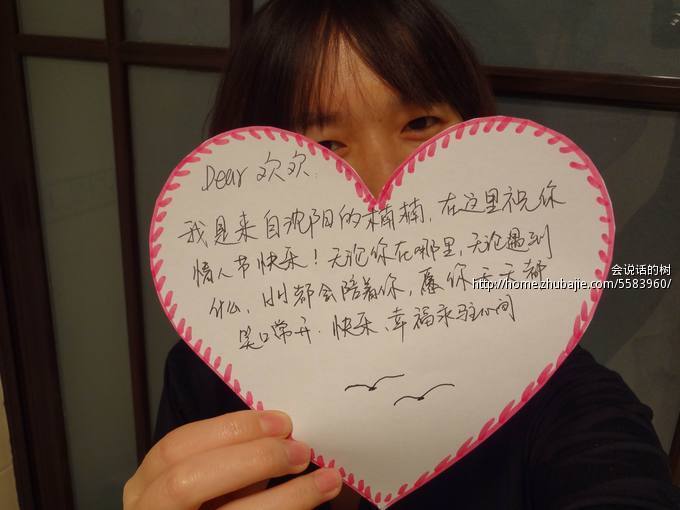 Dear 欢欢:
我是来自沈阳的楠楠,在这里祝你
情人节快乐!无论你在哪里,无论遇到
什么,都会陪着你,愿你天天都
笑口常开.快乐、幸福永驻心间
会说话的树
http://homezhubajie.com/5583960/